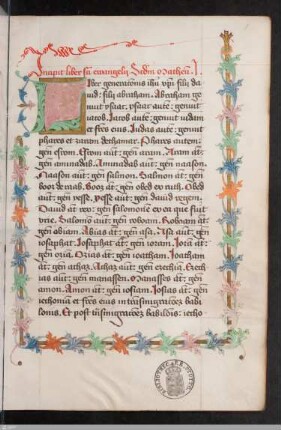 Incipit liber sci ewangelij Scdm Matheu.
Liber generationis ihu xpi filij da
uid: filij abraham. Abraham ge
nuit ysaac. ysaac aute: genuit
iacob. Iacob aute: genuit iudam
et fres eius. Iudas aute: genuit
phares et zaram dethamar. Phares autem:
gen esrom. Esrom aut: gen aram. Aram at:
gen aminadab. Aminadab aut: gen naason.
Naason aut: gen salmon. Salmon at: gen
booz de raab. Booz at: gen obed ex ruth. Obed
aut: gen yesse. yesse aut: gen dauid regem.
Dauid at rex: gen salomone ex ea que fuit
vrie. Salomo aut: gen roboam. Roboam at:
gen abiam. Abias at: gen asa. Asa aut: gen
iosaphat. Iosaphat at: gen ioram. Iora at:
gen ozia. Ozias at: gen ioatham. Ioatham
at: gen achaz. Achaz aut: gen ezechia. Ezech
ias aut: gen manassen. Manasses at: gen
amon. Amon at: gen iosiam. Iosias at: gen
iechonia et fres eius in trasmigratioe babi
lonis. Et post trasmigratioe babilois: iecho